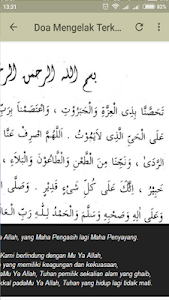 13:31
Doa Mengelak Terk...
بسم الله الرحمن الر
تَحَصَّنَّا بِذِى الْعِزَّةِ وَالْجَبَرُوْتِ ، وَاعْتَصَمْنَا بِرَبِّ
عَلَى الْحَيِّ الَّذِى لَايَمُوْتُ . اَللّٰهُمَّ اصْرِفْ عَنَّا
الرَّدَىْ ، وَنَجِّنَا مِنَ الطَّعْنِ وَالطَّاعُوْنِ وَالْبَلَاءِ ،
خَبِيْرُ ، اِنَّكَ عَلَى كُلِّ شَيْءٍ قَدِيْرٌ . وَصَلَّى
وَعَلَى اٰلِهِ وَصَحْبِهِ وَسَلَّمَ وَالْحَمْدُ لِلّٰهِ رَبِّ الْعَا
Ya Allah, yang Maha Pengasih lagi Maha Penyayang.
Kami berlindung dengan Mu Ya Allah,
yang memiliki keagungan dan kekuasaan,
Mu Ya Allah, Tuhan pemilik sekalian alam yang ghaib,
Ya Allah, Tuhan yang hidup lagi tidak mati.